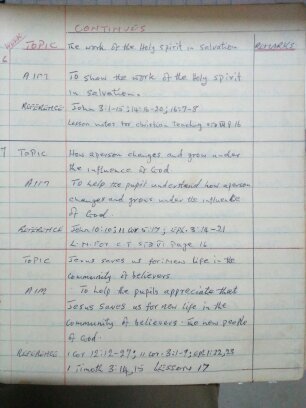 CONTINUES
WEEK TOPIC The work of the Holy Spirit in Salvation REMARKS
6
AIM To show the work of the Holy Spirit
in Salvation.
REFERENCE John 3:1-15; 14:16-20; 16:7-8
Lesson notes for Christian Teaching
7 TOPIC How a person changes and grow under
the influence of God
AIM To help the pupil understand how a person
changes and grows under the influence
of God.
REFERENCE John 10:10; 11 Cor 5:17; Eph. 3:14-21
Page 16
TOPIC Jesus saves us for new life in the
Community of believers.
AIM To help the pupils appreciate that
Jesus saves us for new life in the
Community of believers. The new people
of God.
REFERENCE 1 Cor 12:12-27; 11 Cor. 3:1-9; Eph 1:22,23
1 Timoth 3:14,15 Lesson 17